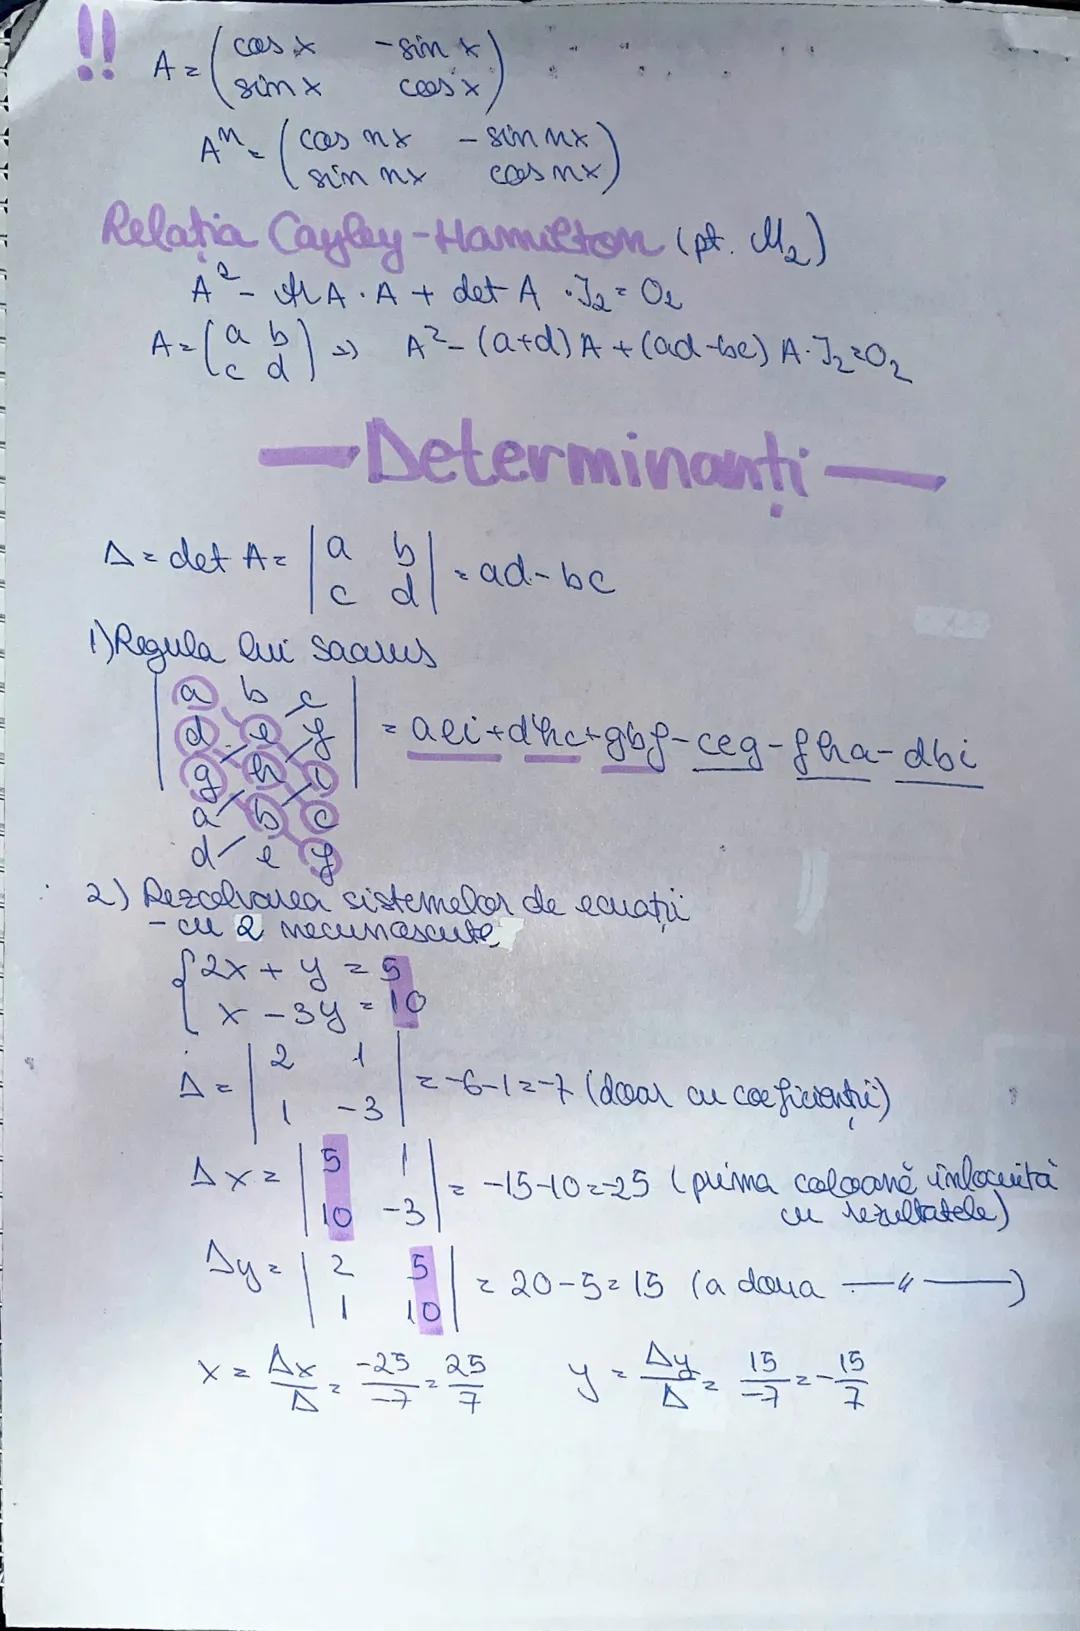 !! A = (cos x -sin x
sin x cos x)
Aⁿ = (cos nx -sin nx
sin nx cos nx)
Relația Cayley-Hamilton (pt. M₂)
A² - tr A · A + det A · I₂ = O₂
A = (a b
c d) => A² - (a+d) A + (ad-bc) A · I₂ = O₂
— Determinanți —
Δ = det A = |a b
c d| = ad - bc
1) Regula lui Saarus
|a b c
d e f
g h i| = aei + dhc + gbf - ceg - fha - dbi
a b c
d e f
2) Rezolvarea sistemelor de ecuații
- cu 2 necunoscute
{2x + y = 5
x - 3y = 10
Δ = |2 1
1 -3| = -6-1 = -7 (doar cu coeficienții)
Δx = |5 1
10 -3| = -15-10 = -25 (prima coloană înlocuită
cu rezultatele)
Δy = |2 5
1 10| = 20-5 = 15 (a doua —〃—)
x = Δx/Δ = -25/-7 = 25/7 y = Δy/Δ = 15/-7 = -15/7